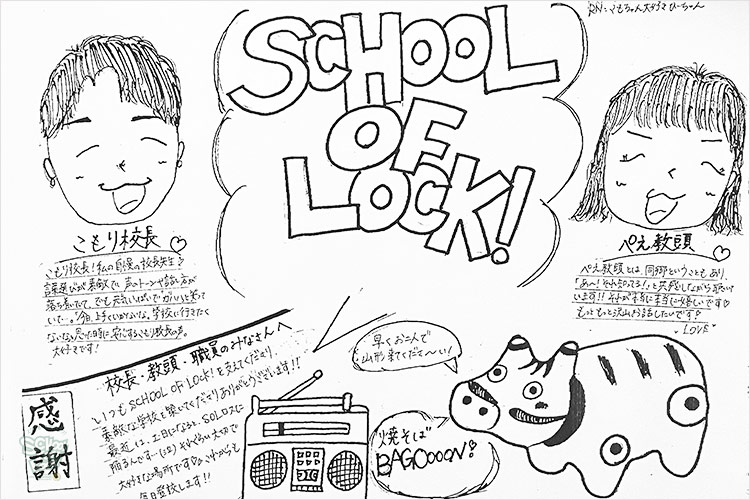 RN:こもちゃん大好きひーちゃん
SCHOOL
OF
LOCK!
こもり校長♡
こもり校長!私の自慢の校長先生♪
言葉選びが素敵で、声のトーンや話し方が
落ち着いてて、でも元気いっぱいでガハハと笑って
いて…。「今日、上手くいかないな。学校に行きたく
ないな。」と思った時に安心するこもり校長の声。
大好きです!
ぺえ教頭♡
ぺえ教頭とは、同郷ということもあり
「あ〜!それ知ってる!」と共感しながら聴いて
います!!それが本当に本当に嬉しいです♡
もっともっと沢山お話ししたいです♪
LOVE♡
校長・教頭・職員のみなさんへ
いつもSCHOOL OF LOCK!を支えてくださり、
素敵な学校を築いてくださりありがとうございます!!
最近は、土日になると、SOLロスに
陥るんです…(泣)それぐらい大切で
大好きな場所です♡♪これからも
毎日登校します!!
感
謝
早くお二人で
山形来てくだせ〜い!
焼そば
BAGOOOON!